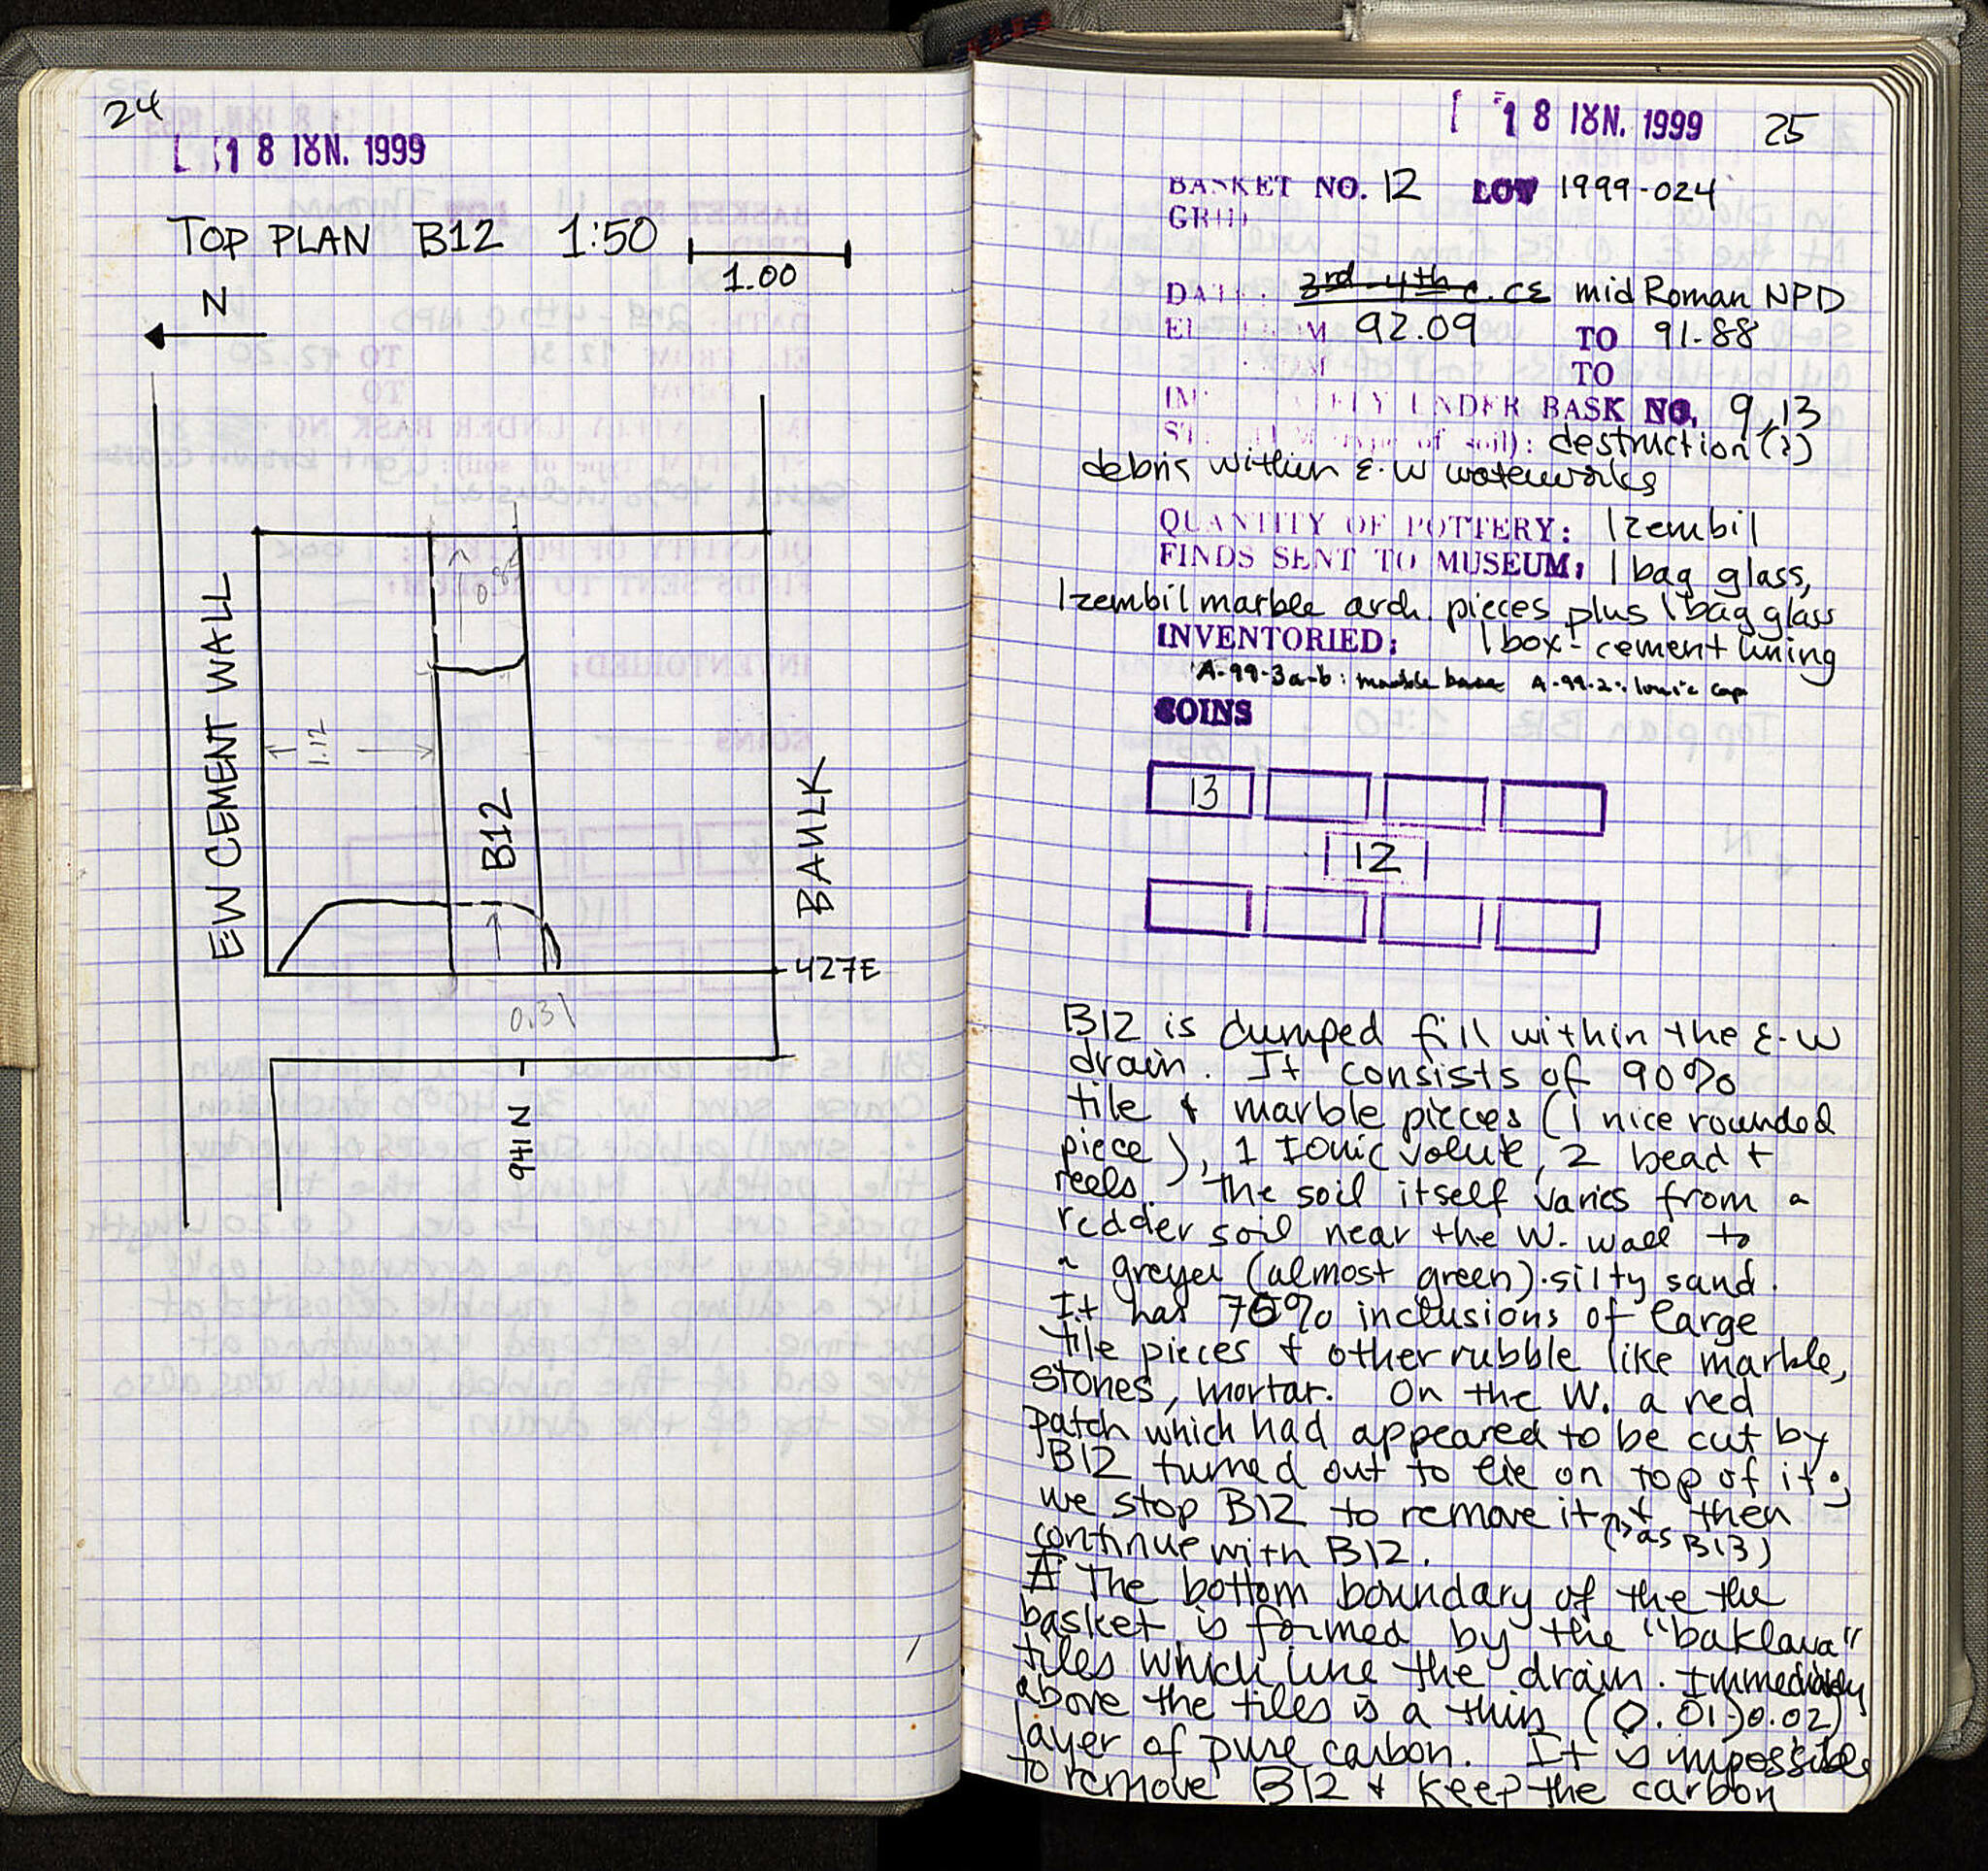 24
18 ΙΟΥΝ. 1999
TOP PLAN B12 1:50
1.00
N
E-W CEMENT WALL
1.12
0.84
B12
BAULK
427E
0.31
941 N -
18 ΙΟΥΝ. 1999 25
BASKET NO. 12 LOT 1999-024
GRID
DATE: 3rd-4th c. CE mid Roman NPD
EL. FROM 92.09 TO 91.88
FROM TO
IMMEDIATELY UNDER BASK NO. 9,13
STRATUM (type of soil): destruction (?)
debris within E-W waterworks
QUANTITY OF POTTERY: 1 zembil
FINDS SENT TO MUSEUM: 1 bag glass,
1 zembil marble arch. pieces plus 1 bag glass
INVENTORIED: 1 box - cement lining
A-99-3a-b: marble base A-99-2: Ionic cap
COINS
13
12
B12 is dumped fill within the E-W
drain. It consists of 90%
tile & marble pieces (1 nice rounded
piece), 1 Ionic volute, 2 bead +
reels. The soil itself varies from a
redder soil near the W. wall to
a greyer (almost green) silty sand.
It has 75% inclusions of large
tile pieces & other rubble like marble,
stones, mortar. On the W. a red
patch which had appeared to be cut by
B12 turned out to lie on top of it;
we stop B12 to remove it + then
(as B13)
continue with B12.
The bottom boundary of the the
basket is formed by the "baklava"
tiles which line the drain. Immediately
above the tiles is a thin (0.01-0.02)
layer of pure carbon. It is impossible
to remove B12 & keep the carbon